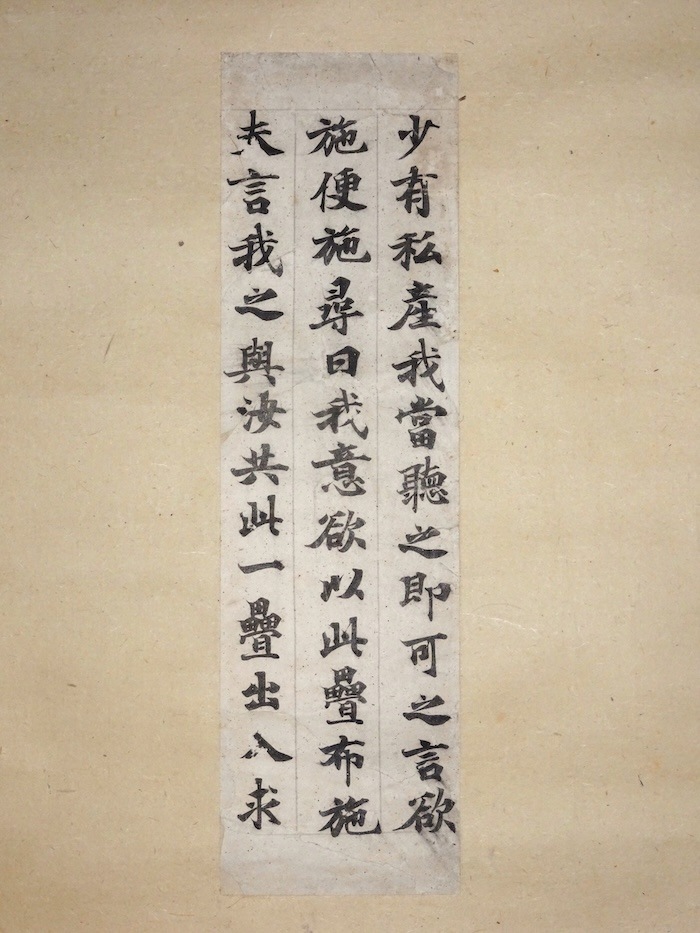 少有私產我當聽之即可之言欲
施便施尋曰我意欲以此疊布施
夫言我之與汝共此一疊出入求